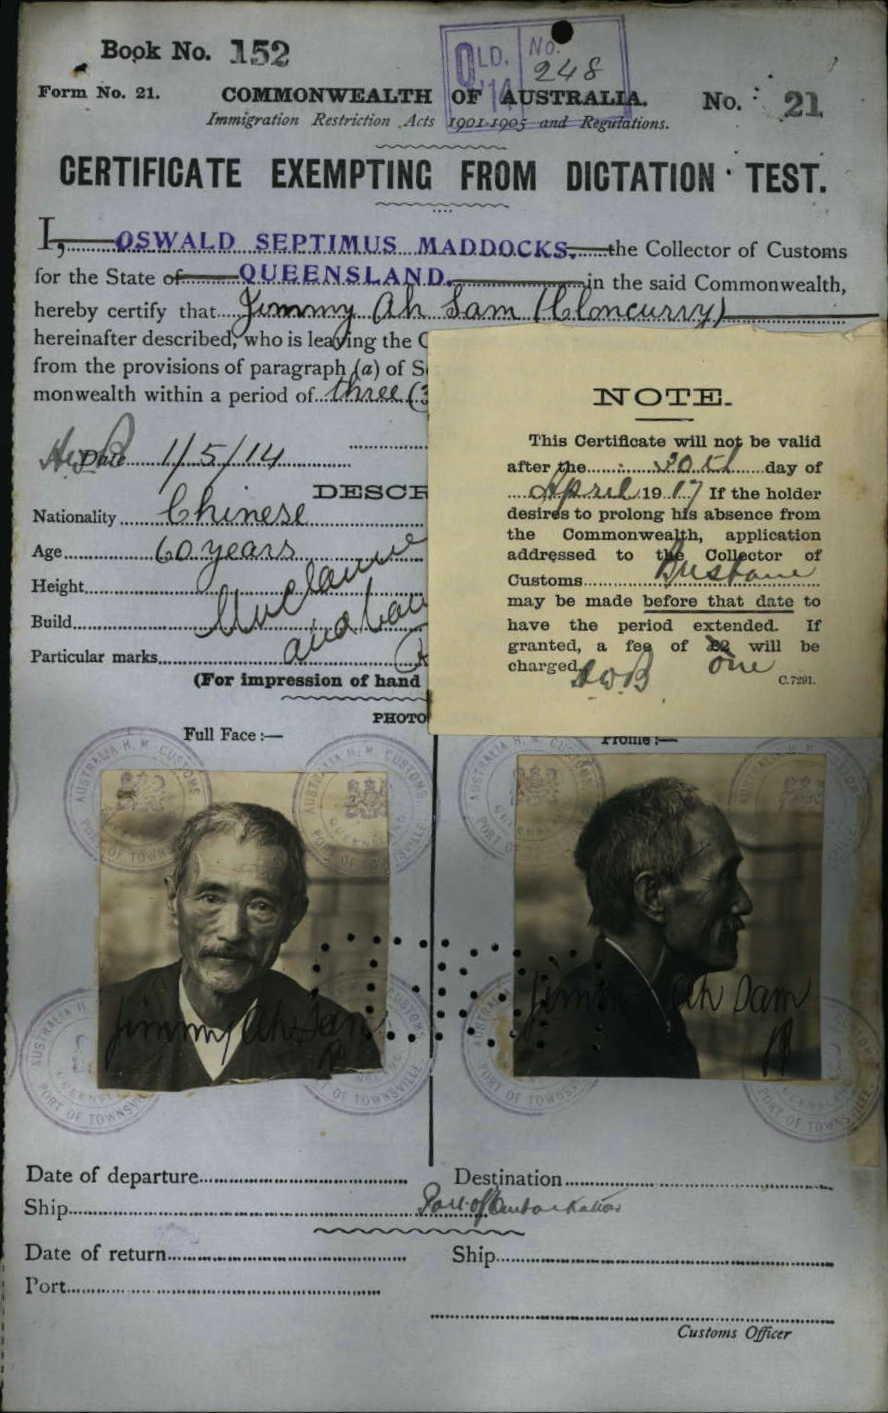 Book No. 152
QLD. '14 No. 248
Form No. 21. COMMONWEALTH OF AUSTRALIA. No. 21
Immigration Restriction Acts 1901-1905 and Regulations.
CERTIFICATE EXEMPTING FROM DICTATION TEST.
I, OSWALD SEPTIMUS MADDOCKS, the Collector of Customs
for the State of QUEENSLAND. in the said Commonwealth,
hereby certify that Jimmy Ah Sam (Cloncurry)
hereinafter described, who is leaving the C
from the provisions of paragraph (a) of S
monwealth within a period of three (3
Date 1/5/14
DESCR
Nationality Chinese
Age 60 years
Height
Build
Particular marks
(For impression of hand
PHOTO
NOTE.
This Certificate will not be valid
after the 30th day of
April 1917 If the holder
desires to prolong his absence from
the Commonwealth, application
addressed to the Collector of
Customs Brisbane
may be made before that date to
have the period extended. If
granted, a fee of £2 one will be
charged.
C.7291.
Full Face :— Profile :—
AUSTRALIA H. M. CUSTOMS
QUEENSLAND
PORT OF TOWNSVILLE
Jimmy Ah Sam Jimmy Ah Sam
Date of departure Destination
Ship Port of Embarkation
Date of return Ship
Port
Customs Officer